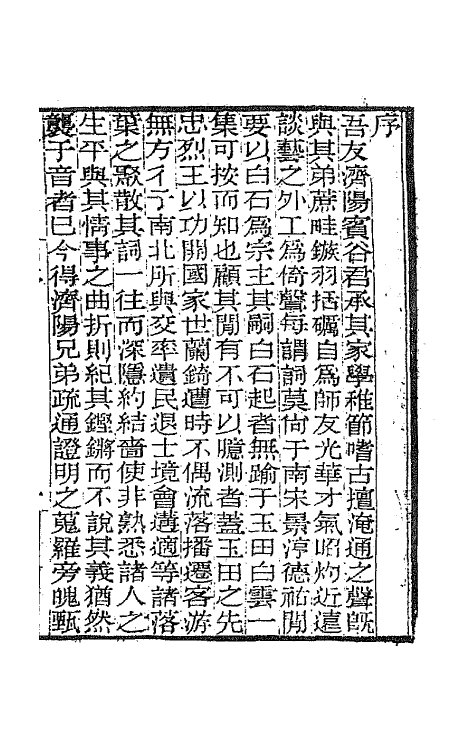 序
吾友濟陽賓谷君承其家學稚節嗜古擅淹通之聲旣
與其弟蔗畦鏃羽括礪自為師友光華才氣昭灼近遠
談藝之外工為倚聲每謂詞莫尚于南宋景淳德祐閒
要以白石爲宗主其嗣白石起者無踰于玉田白雲一
集可按而知也顧其閒有不可以臆測者蓋玉田之先
忠烈王以功開國家世蘭錡遭時不偶流落播遷客游
無方彳亍南北所與交率遺民退士境會遘適等諸落
葉之聚散其詞一往而深隱約結嗇使非熟悉諸人之
生平與其情事之曲折則紀其鏗鏘而不說其義猶然
襲于音者已今得濟陽兄弟疏通證明之蒐羅旁魄甄